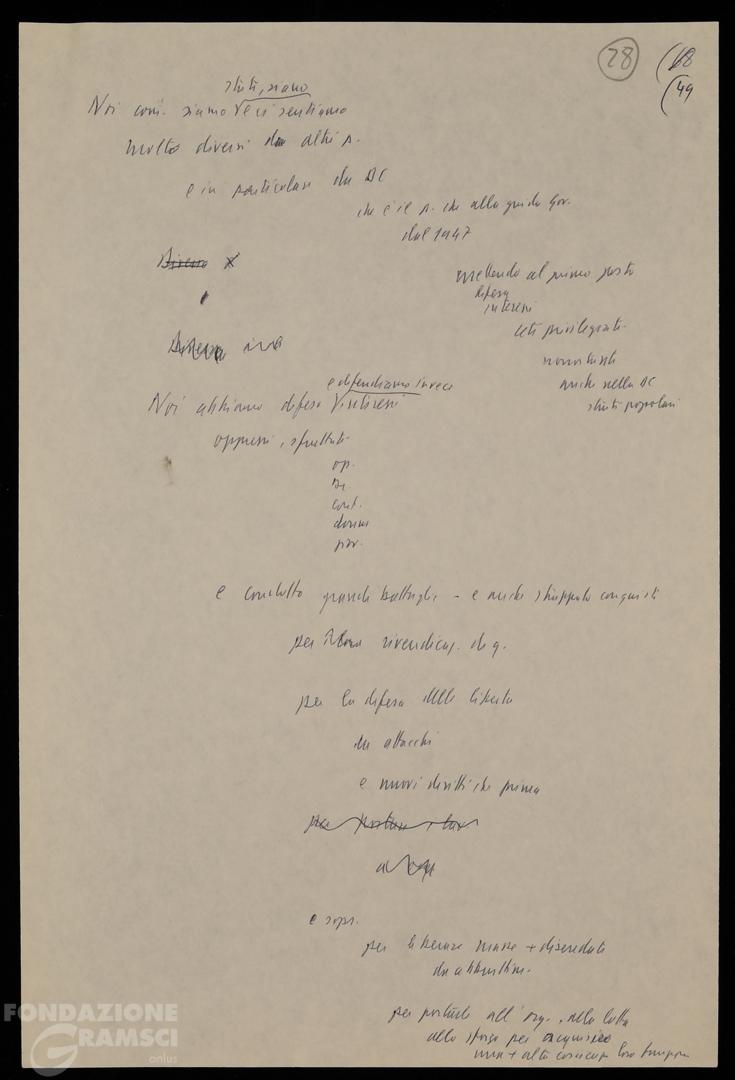 28
18
49
stati, siamo
Noi com. siamo e ci sentiamo
molto diversi da altri p.
e in particolare da DC
che è il p. che alla guida Gov.
dal 1947
mettendo al primo posto
difesa
interessi
ceti privilegiati
nonostante
anche nella DC
strati popolari
e difendiamo invece
Noi abbiamo difeso interessi
oppressi, sfruttati
op.
cont.
donne
pov.
e condotto grandi battaglie - e anche strappato conquiste
per loro rivendicaz. di q.
per la difesa delle libertà
da attacchi
e nuovi diritti che prima
e sopr.
per liberare masse + diseredate
da abbruttim.
per portarle all'org., alla lotta
allo sforzo per acquisire
una + alta coscienza loro
FONDAZIONE
GRAMSCI
onlus